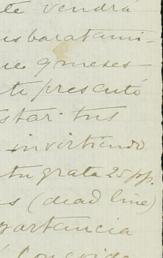 te vendrá
baratami-
que 9 meses
te presenté
estar tus
invirtiendo
tu grata 25 pp.
s (dead line)
portancia